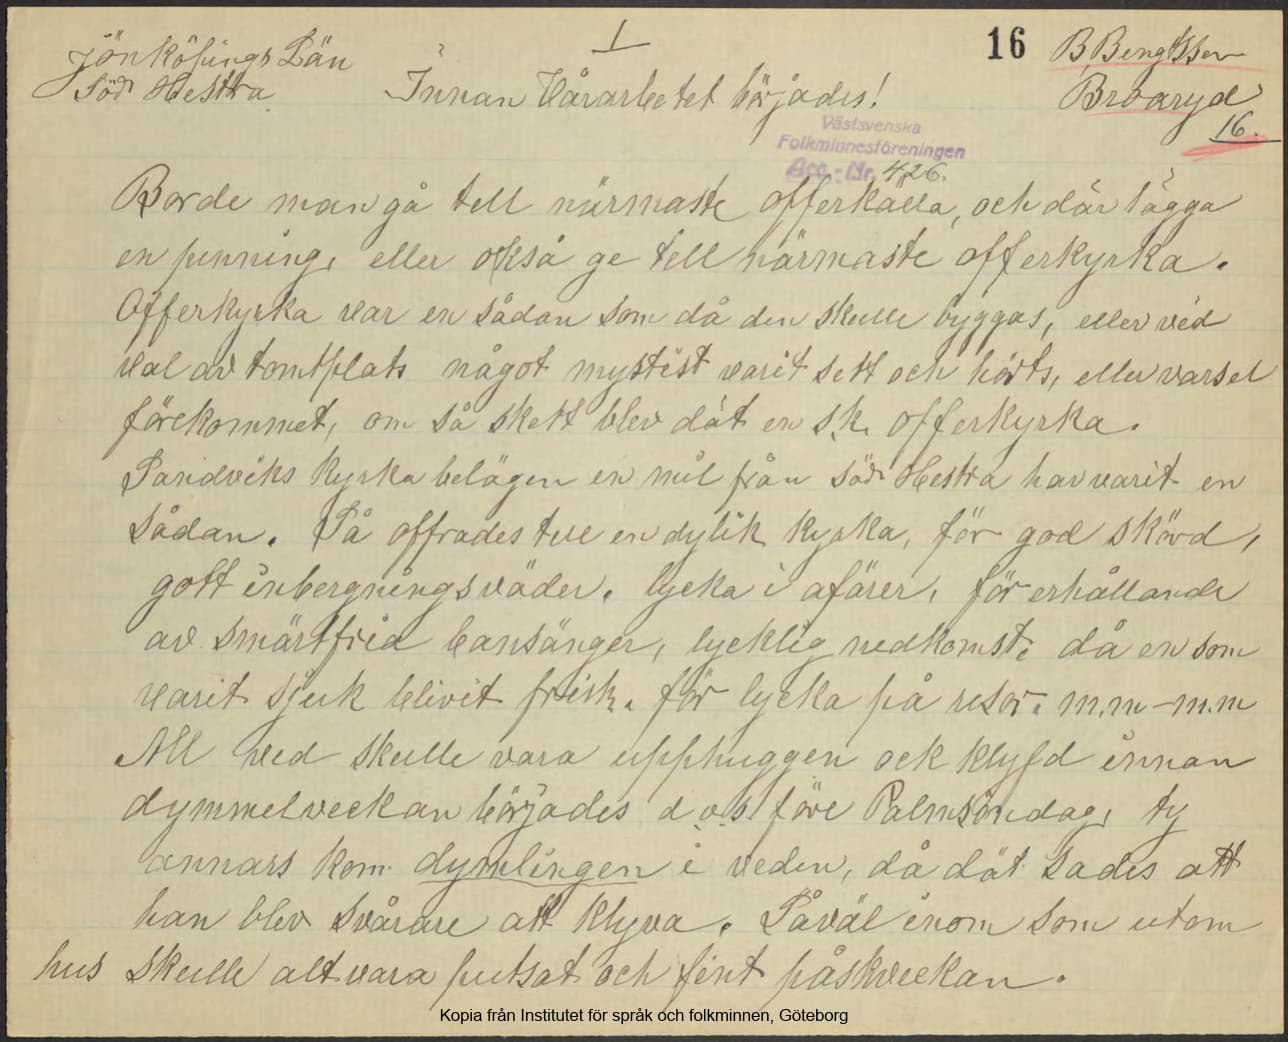 1
16
Jönköpings Län
Söd. Hestra
B. Bengtsson
Broaryd
16.
Innan Vårarbetet börjades!
Västsvenska
Folkminnesföreningen
Acc.-Nr. 426.
Borde man gå tell närmaste offerkälla, och där lägga
en penning, eller också ge tell närmaste offerkyrka.
Offerkyrka var en sådan som då den skulle byggas, eller ved
val av tomtplats något mystist varit sett och hörts, eller varsel
förekommet, om så skett blev dät en s.k. offerkyrka.
Sandviks kyrka belägen en mil från Söd. Hestra har varit en
sådan. Så offrades tell en dylik kyrka, för god skörd,
gott inbergningsväder, lycka i afärer, för erhållande
av smärtfria barnsänger, lycklig nedkomst, då en som
varit sjuk blivit frisk. för lycka på resor. m.m – m.m
All ved skulle vara upphuggen ock klyfd innan
dymmelveckan börjades d v s före Palmsöndag, ty
annars kom dymlingen i veden, då dät sades att
han blev svårare att klyva. Såväl inom som utom
hus skulle alt vara putsat och fint påskveckan.
Kopia från Institutet för språk och folkminnen, Göteborg